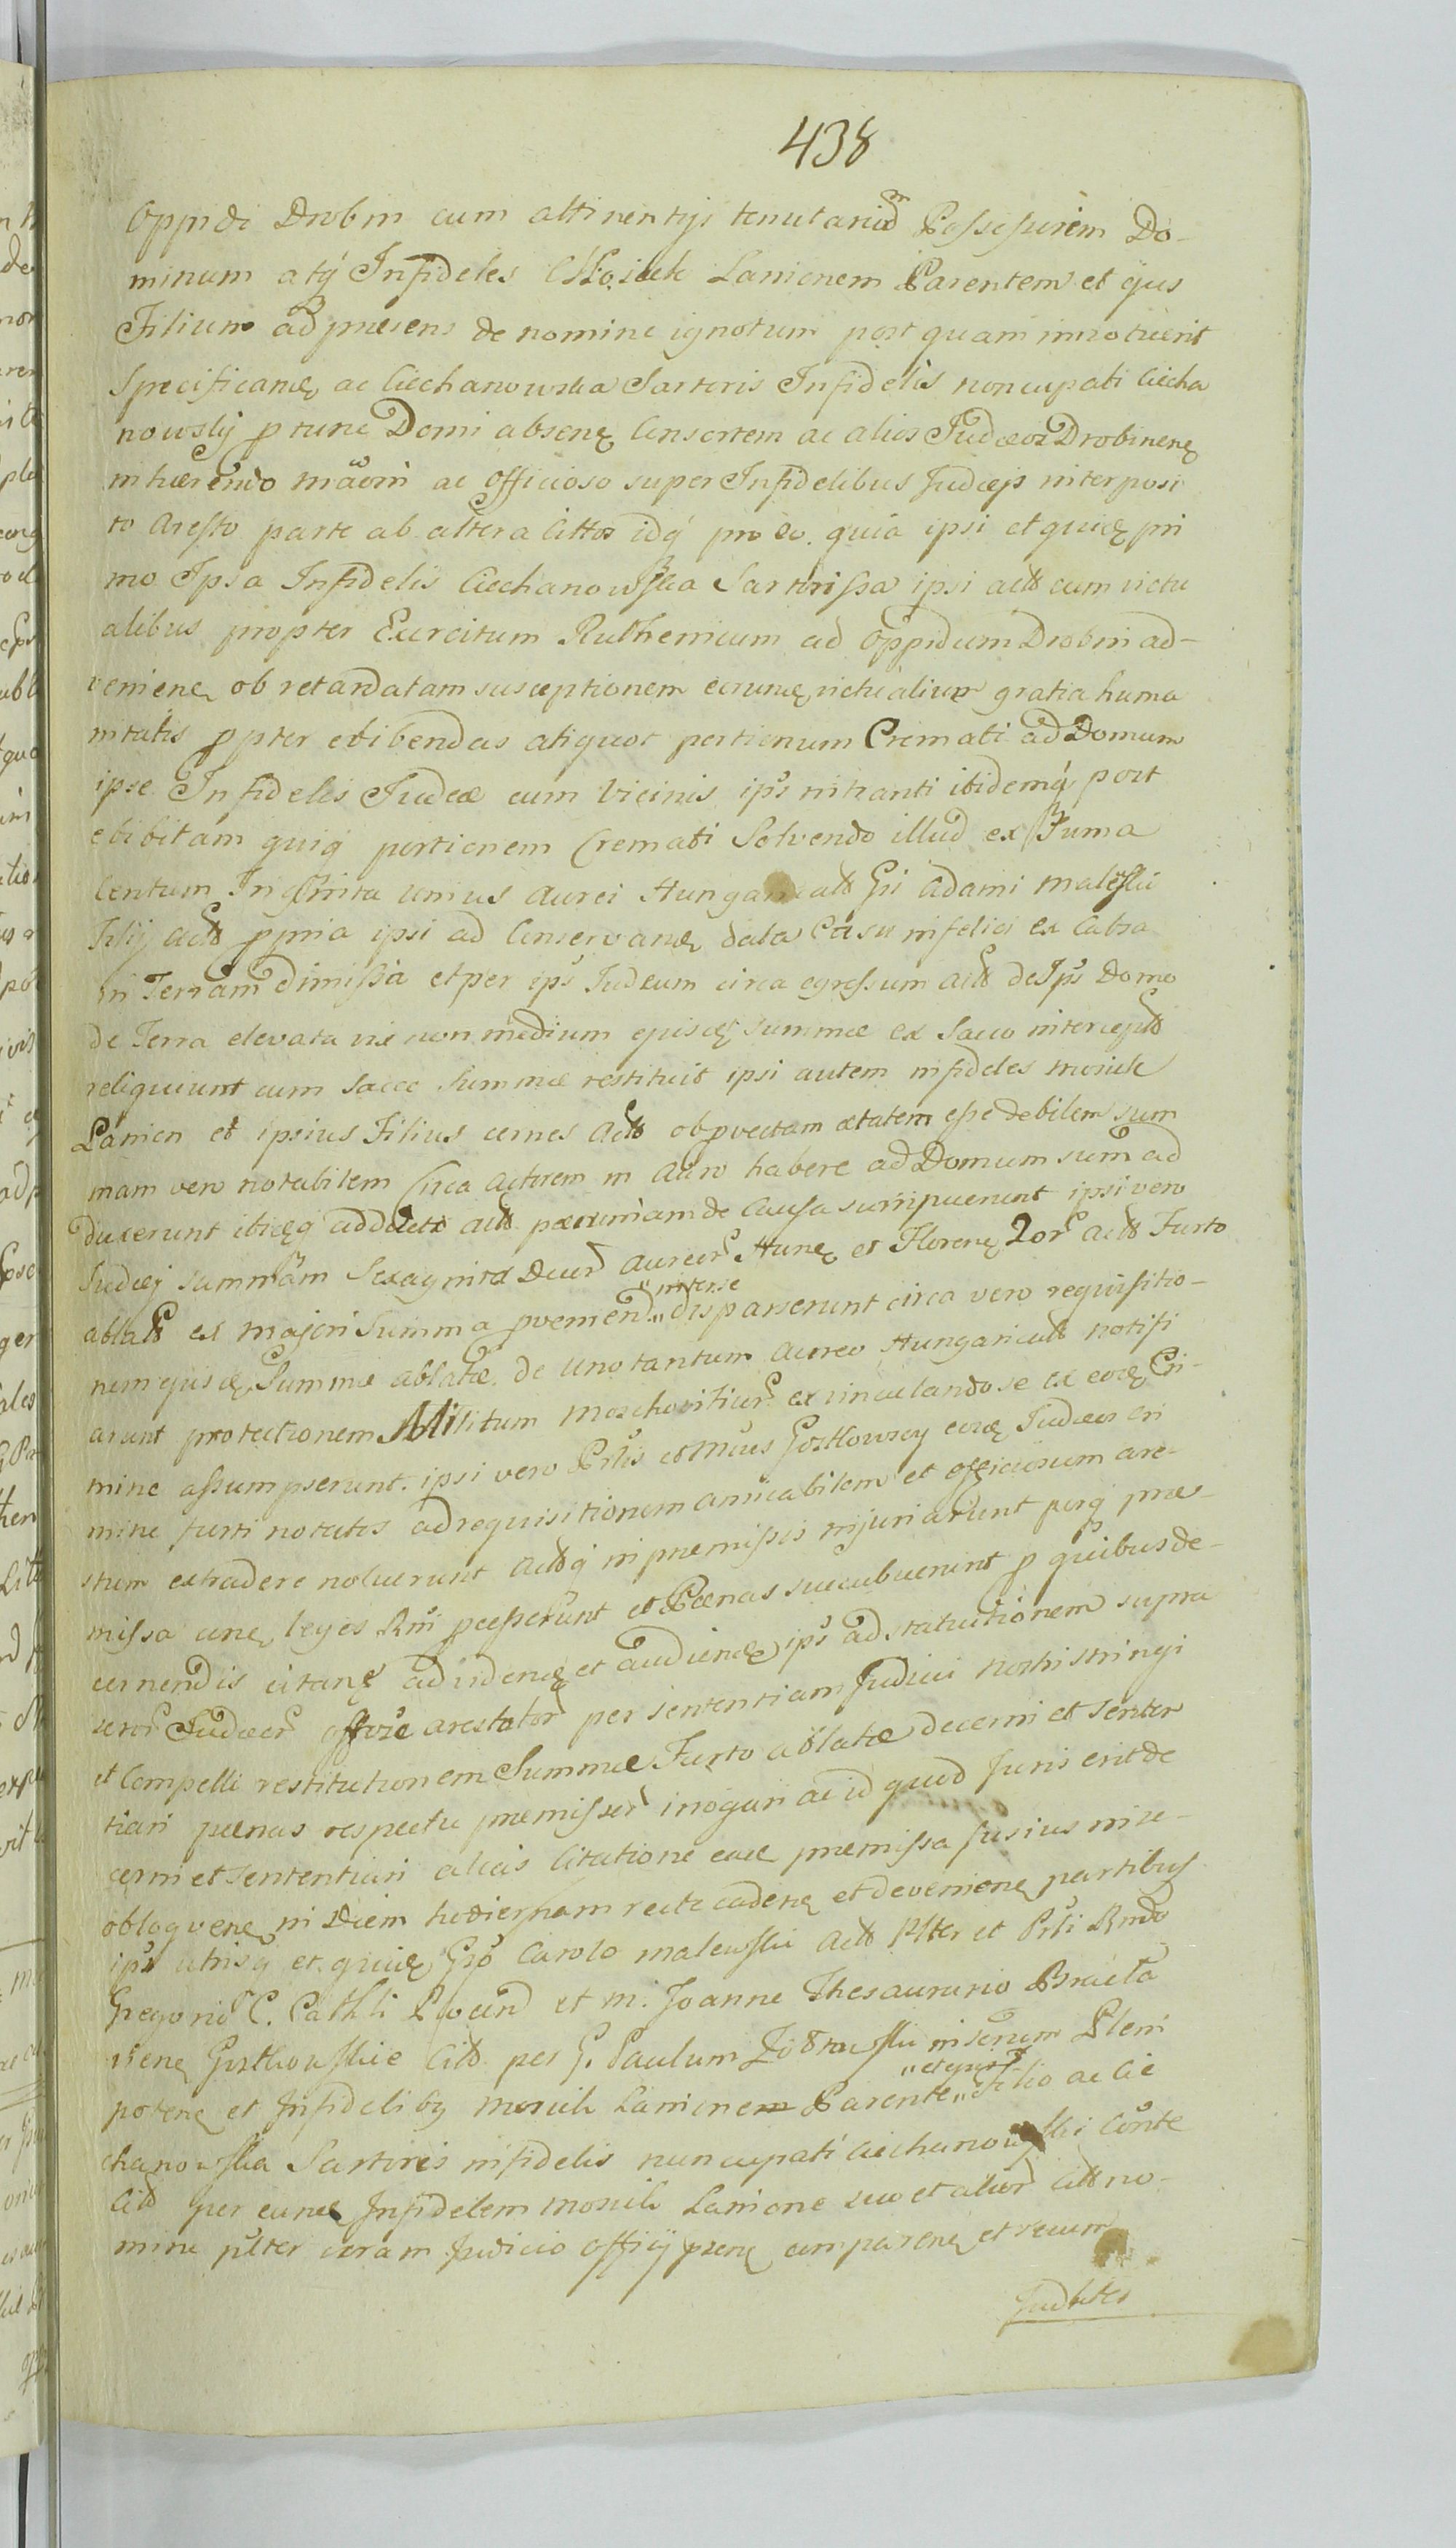 438
Oppidi Drobin cum attinentijs tenutarium Possessorem Do-
minum atq́ Infideles Mosiek Lanionem Parentem et ejus
Filium ad praesens de nomine ignotum post quam innotuerit
Specificanḍ ac Ciechanowska Sartoris Infidelis noncupati Ciecha
nowskij p tunc Domi absenę Consortem ac alios Judaeos Drobinenę
inhaerendo ac officioso super Infidelibus Judaeijs interposi
to Aresto parte ab altera Cittos idq́ pro eo quia ipsi et quidę pri
mo Ipsa Infidelis Ciechanowska Sartorissa ipsi actō cum victu
alibus propter Exercitum Ruthenicum ad Oppidum Drobin ad-
venienę ob retardatam susceptionem eorundę victualium gratia huma
nitatis ppter ebibendas aliquot portionum Cremati ad Domum
ipse Infidelis Judeae cum Vicinis ips intranti ibidemq́ post
ebibitam quiq́ portionem Cremati Solvendo illud ex Suma
Centum Triginta unius Aurei Hungaricalō Gsi Adami Maleski
Filij actō ppria ipsi ad Conservanḍ data Casu infelici ex Catza
in Terram dimissa et per ips Judeum circa egressum actō de Ips Domo
de Terra elevata nix non medium ejusdę summae ex Sacco interceptō
reliquiunt cum Sacco Summae restituit ipsi autem infideles Mosiek
Lanien et ipsius Filius cernes actō ob pvectam aetatem esse debilem sum
mam vero notabilem Circa Actorem in Auro habere ad Domum suum ad
duxerunt ibidęq́ adducto actō pecuniam de Causa surripuerunt ipsi vero
Judaej summam Sexaginta Duor Aureor Hunę et Florenę 2or actō Furto
ablatō ex majori Summa pvemend „interse„ disparserunt circa vero requisitio-
nem ejusdę Summae ablatae de uno tantum Aureo Hungaricalō notifi
arunt protectionem Militum Moschovitiur exvinculando se ex eodę Cri-
mine assumpserunt. ipsi vero Prlis et Mūes Gostkowscy eosdę Judaeos cri
mine furti notatos ad requisitionem amicabilem et officiosum are-
stum extradere noluerunt actōq́ in praemissis injuriarunt perq́ prae-
missa unę leges Rni pcesserunt et Poenas succubuerunt p quibus de-
cernendis citanę ad videnḍ et audiendę ips ad statuitionem supra
scror Judaeor offose arestator per sententiam Judicii nostri stringi
et Compelli restitutionem Summae Furto ablatae decerni et senten
tiari poenas respectu praemissor irrogari ac id quod Juris erit de
cerni et sententiari alias Citatione eadę praemissa fusius in se-
obloqvenę in Diem hodiernam recte cadenę et devenienę partibus
ips utrisq́ et quidę Gso Carolo Malewski actō Plter et Prli Rndo
Gregorio C. Cathli et M. Joanne Thesaurario Braclā
vienę Gostkowskie Citō per G. Paulum insenum Pleni
potenę et Infidelibq Mosiek Lanionem Parente „et ejus„ Filio ac Cie
chanowska Sartoris infidelis nuncupati Ciechanowski Conte
Citō per eundę Infidelem Mosiek Lanione suo et alior Citō no-
mine plter coram Judicio Officij prenę comparenę et secum
Judlites